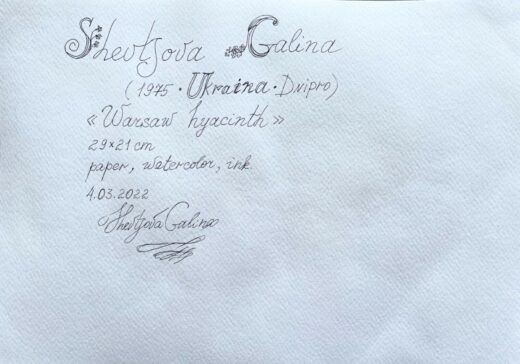 Shevtsova Galina
(1975 · Ukraina · Dnipro)
« Warsaw hyacinth »
29×21 cm
paper, watercolor, ink
4.03.2022
Shevtsova Galina